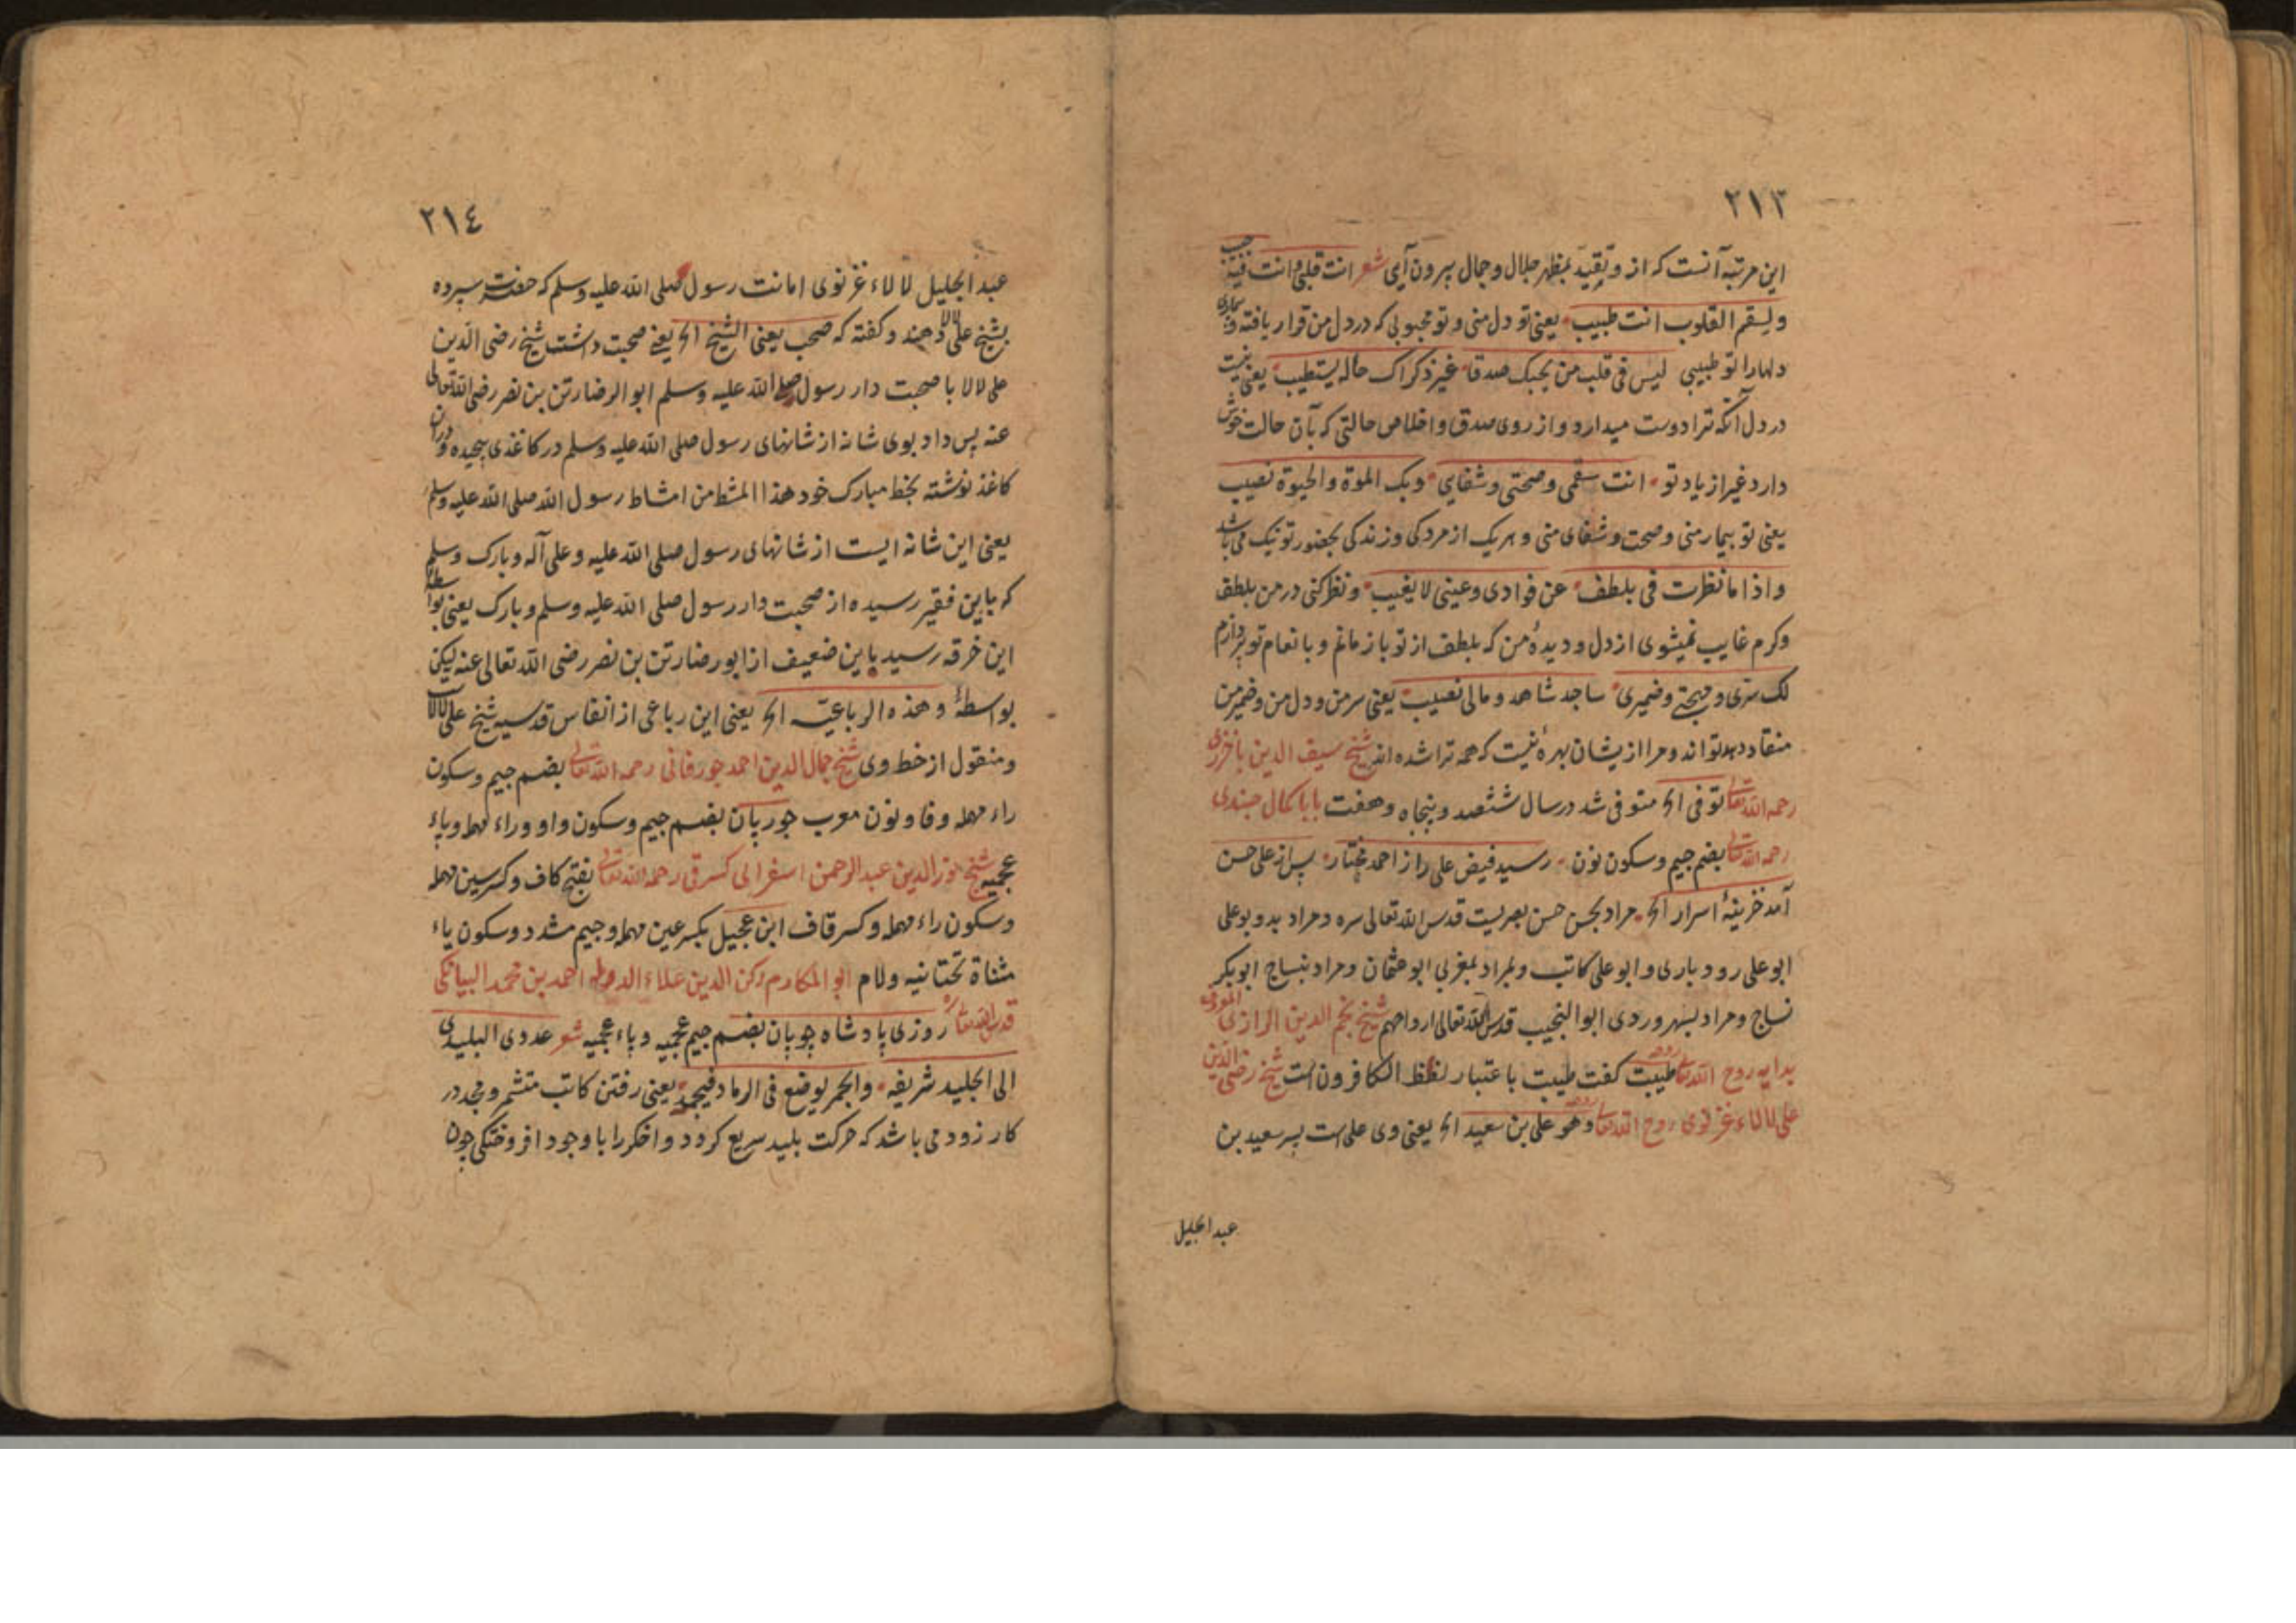 ٢١٣
این مرتبه آنست که از و تقید بمظهر جلال و جمال بیرون آی شعر انت قلبی و انت فیه حبیب
ولسقم القلوب انت طبیب یعنی تو دل منی و تو محبوبی که در دل من قرار یافته و بیماری
دلهارا تو طبیبی لیس فی قلب من یحبک صدقا غیر ذکراک حاله یستطیب یعنی نیست
در دل آنکه ترا دوست میدارد و از روی صدق و اخلاص حالتی که بآن حالت خوش
دارد غیر از یاد تو انت سقمی و صحتی و شفای وبک الموة والحیوة نصیب
یعنی تو بیمار منی و صحت و شفای منی و هر یک از مردکی و زندکی بحضور تو نیک می باشد
واذا ما نظرت فی بلطف عن فوادی وعینی لا یغیب و نظر کنی در من بلطف
وکرم غایب نمیشوی از دل و دیدۀ من که بلطف از تو باز مانم و بانعام تو پردازم
لک سری ومهجتی وضمیری ساجد شاهد ومالی نصیب یعنی سر من و دل من و ضمیر من
منقاد دیدتواند و مرا از یشان بهرۀ نیست که همه ترا شده اند شیخ سیف الدین باخرزی
رحمه الله تعالی توفی الخ متوفی شد در سال ششصد و پنجاه و هفت بابا کمال جندی
رحمه الله تعالی بضم جیم و سکون نون رسید فیض علی را از احمد مختار پس از علی حسن
آمد خزینۀ اسرار الخ مراد بحسن حسن بصریست قدس الله تعالی سره و مراد بدو بوعلی
ابو علی رودباری و ابو علی کاتب و مراد بمغربی ابو عثمان و مراد بنساج ابوبکر
نساج و مراد بسهروردی ابوالنجیب قدس الله تعالی ارواحهم شیخ نجم الدین الرازی المعروف
بدایه روح الله تعالی روحه طیبت کفت طیبت باعتبار لفظ الکافرون است شیخ رضی الدین
علی لالاء غزنوی روح الله تعالی روحه وهو علی بن سعید الخ یعنی وی علی است پسر سعید بن
عبد الجلیل
٢١٤
عبد الجلیل لالاء غزنوی امانت رسول صلی الله علیه وسلم که حضرت سپرده
بشیخ علی لالا دهند و کفته که صحب یعنی الشیخ الخ یعنی صحبت داشت شیخ رضی الدین
علی لالا با صحبت دار رسول صلی الله علیه وسلم ابو الرضا رتن بن نصر رضی الله تعالی
عنه پس داد بوی شانه از شانهای رسول صلی الله علیه وسلم در کاغذی پیچیده و در آن
کاغذ نوشته بخط مبارک خود هذا المشط من امشاط رسول الله صلی الله علیه وسلم
یعنی این شانه ایست از شانهای رسول صلی الله علیه وعلی آله وبارک وسلم
که باین فقیر رسیده از صحبت دار رسول صلی الله علیه وسلم وبارک یعنی بواسطۀ
این خرقه رسید باین ضعیف از ابو رضا رتن بن نصر رضی الله تعالی عنه لیکن
بواسطۀ وهذه الرباعیة الخ یعنی این رباعی از انفاس قدسیه شیخ علی لالا
و منقول از خط وی شیخ جمال الدین احمد جورفانی رحمه الله تعالی بضم جیم و سکون
راء مهمله وفا و نون معرب جوربان بضم جیم و سکون واو و راء مهمله و باء
عجمیه شیخ نور الدین عبد الرحمن اسفراینی کسرقی رحمه الله تعالی بفتح کاف و کسر سین مهمله
وسکون راء مهمله و کسر قاف ابن عجیل بکسر عین مهمله و جیم مشدد و سکون یاء
مثناة تحتانیه و لام ابو المکارم رکن الدین علاء الدوله احمد بن محمد البیابانکی
قدس الله تعالی سره روزی پادشاه چوپان بضم جیم عجمیه و باء عجمیه شعر عدوی البلیدی
الی الجلید شریفه والجمر یوضع فی الرماد فیخمد یعنی رفتن کاتب متشمر و مجد در
کار زود می باشد که حرکت بلید سریع کرود و اخکر را با وجود افروختکی چون